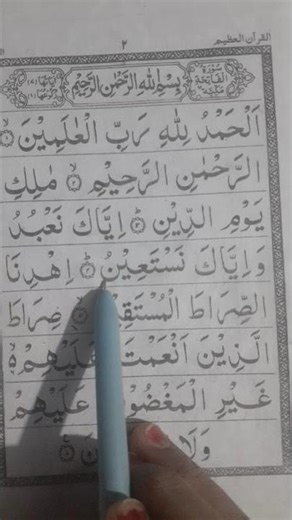 القرآن العظيم
٢
سورة الفاتحة مكية
بِسْمِ اللهِ الرَّحْمٰنِ الرَّحِيْمِ
اَلْحَمْدُ لِلّٰهِ رَبِّ الْعٰلَمِيْنَ ۙ﴿۱﴾
الرَّحْمٰنِ الرَّحِيْمِ ۙ﴿۲﴾ مٰلِكِ
يَوْمِ الدِّيْنِ ؕ﴿۳﴾ اِيَّاكَ نَعْبُدُ
وَ اِيَّاكَ نَسْتَعِيْنُ ؕ﴿۴﴾ اِهْدِنَا
الصِّرَاطَ الْمُسْتَقِيْ صِرَاطَ
الَّذِيْنَ اَنْعَمْتَ عَلَيْهِمْ
غَيْرِ الْمَغْضُوْ عَلَيْهِمْ
وَلَا